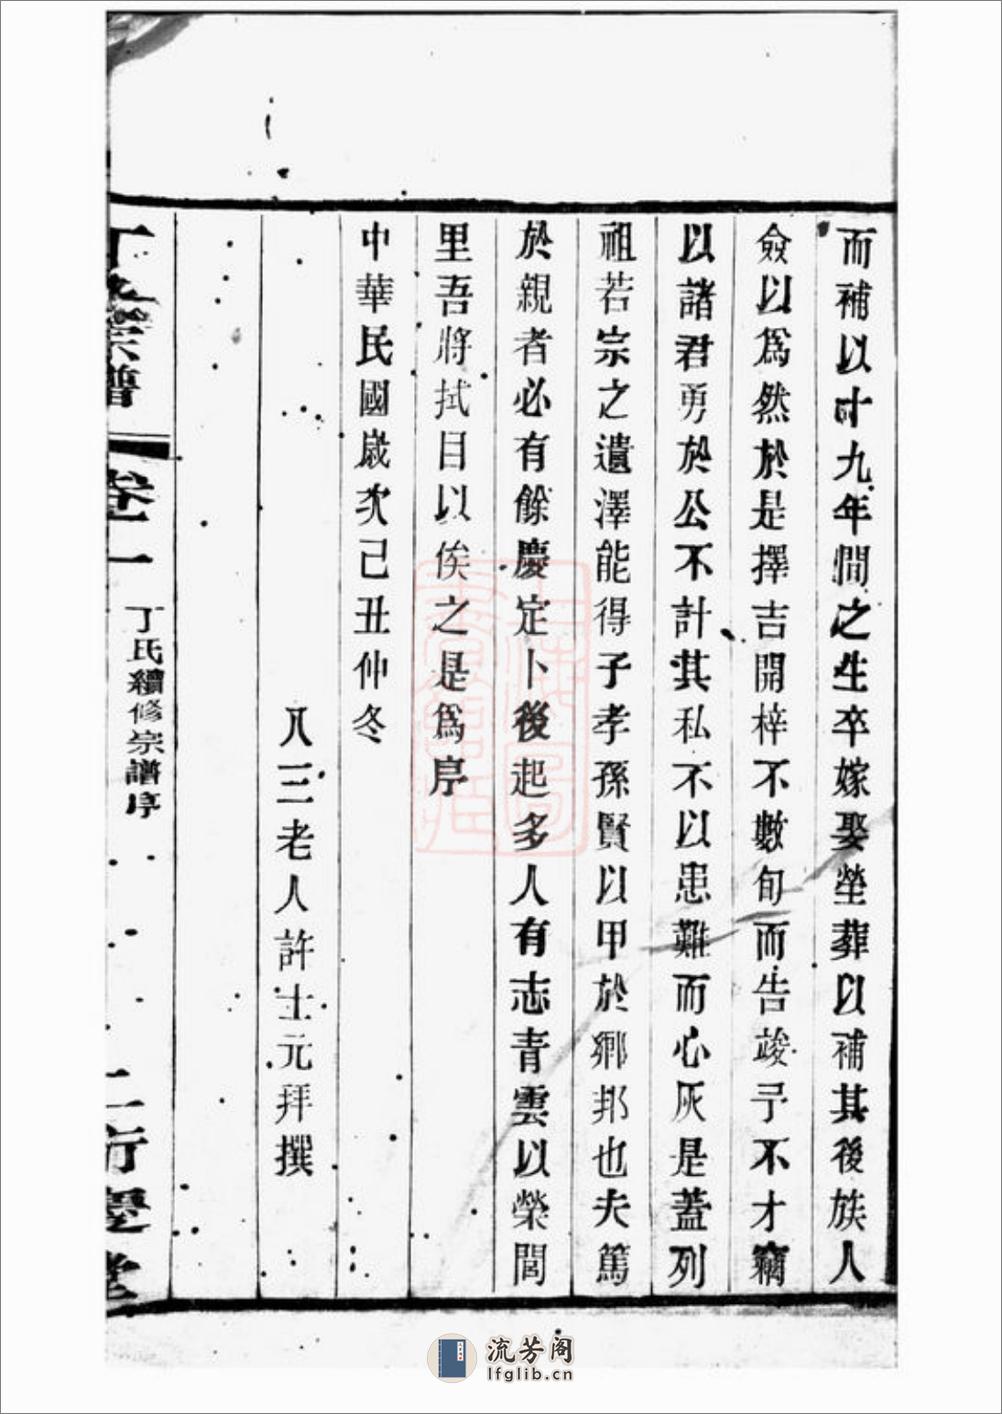 而補以十九年間之生卒嫁娶塋葬以補其後族人
僉以爲然於是擇吉開梓不數旬而告竣予不才竊
以諸君勇於公不計其私不以患難而心灰是蓋列
祖若宗之遺澤能得子孝孫賢以甲於鄉邦也夫篤
於親者必有餘慶定卜後起多人有志青雲以榮閭
里吾將拭目以俟之是爲序
中華民國歲次己丑仲冬
八三老人許士元拜撰
丁氏宗譜
卷一
丁氏續修宗譜序
二
衍慶堂
流芳阁
lfglib.cn